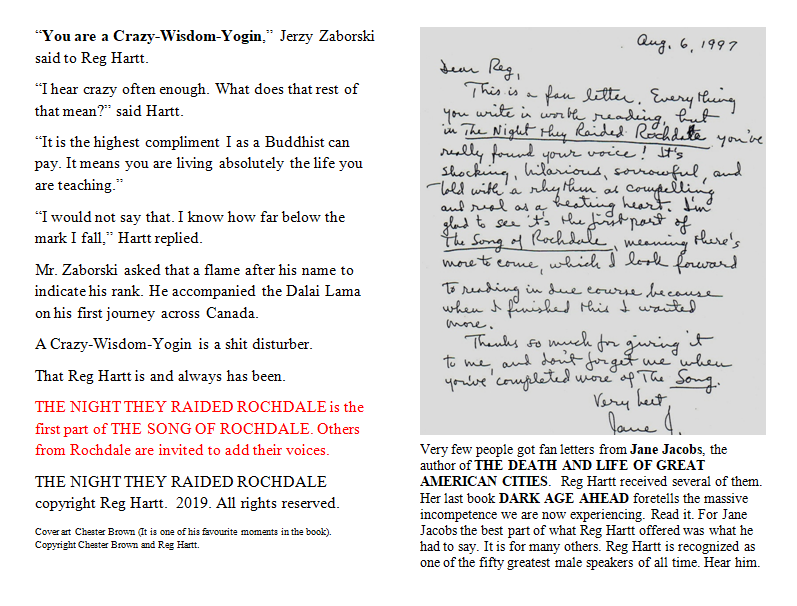 “You are a Crazy-Wisdom-Yogin,” Jerzy Zaborski
said to Reg Hartt.
“I hear crazy often enough. What does that rest of
that mean?” said Hartt.
“It is the highest compliment I as a Buddhist can
pay. It means you are living absolutely the life you
are teaching.”
“I would not say that. I know how far below the
mark I fall,” Hartt replied.
Mr. Zaborski asked that a flame after his name to
indicate his rank. He accompanied the Dalai Lama
on his first journey across Canada.
A Crazy-Wisdom-Yogin is a shit disturber.
That Reg Hartt is and always has been.
THE NIGHT THEY RAIDED ROCHDALE is the
first part of THE SONG OF ROCHDALE. Others
from Rochdale are invited to add their voices.
THE NIGHT THEY RAIDED ROCHDALE
copyright Reg Hartt. 2019. All rights reserved.
Cover art Chester Brown (It is one of his favourite moments in the book).
Copyright Chester Brown and Reg Hartt.
Aug. 6, 1997
Dear Reg,
This is a fan letter. Everything
you write is worth reading, but
in The Night They Raided Rochdale you've
really found your voice! It's
shocking, hilarious, sorrowful, and
told with a rhythm as compelling
and real as a beating heart. I'm
glad to see it's the first part of
The Song of Rochdale, meaning there's
more to come, which I look forward
to reading in due course because
when I finished this I wanted
more.
Thanks so much for giving it
to me, and don't forget me when
you've completed more of The Song.
Very best,
Jane J.
Very few people got fan letters from Jane Jacobs, the
author of THE DEATH AND LIFE OF GREAT
AMERICAN CITIES. Reg Hartt received several of them.
Her last book DARK AGE AHEAD foretells the massive
incompetence we are now experiencing. Read it. For Jane
Jacobs the best part of what Reg Hartt offered was what he
had to say. It is for many others. Reg Hartt is recognized as
one of the fifty greatest male speakers of all time. Hear him.